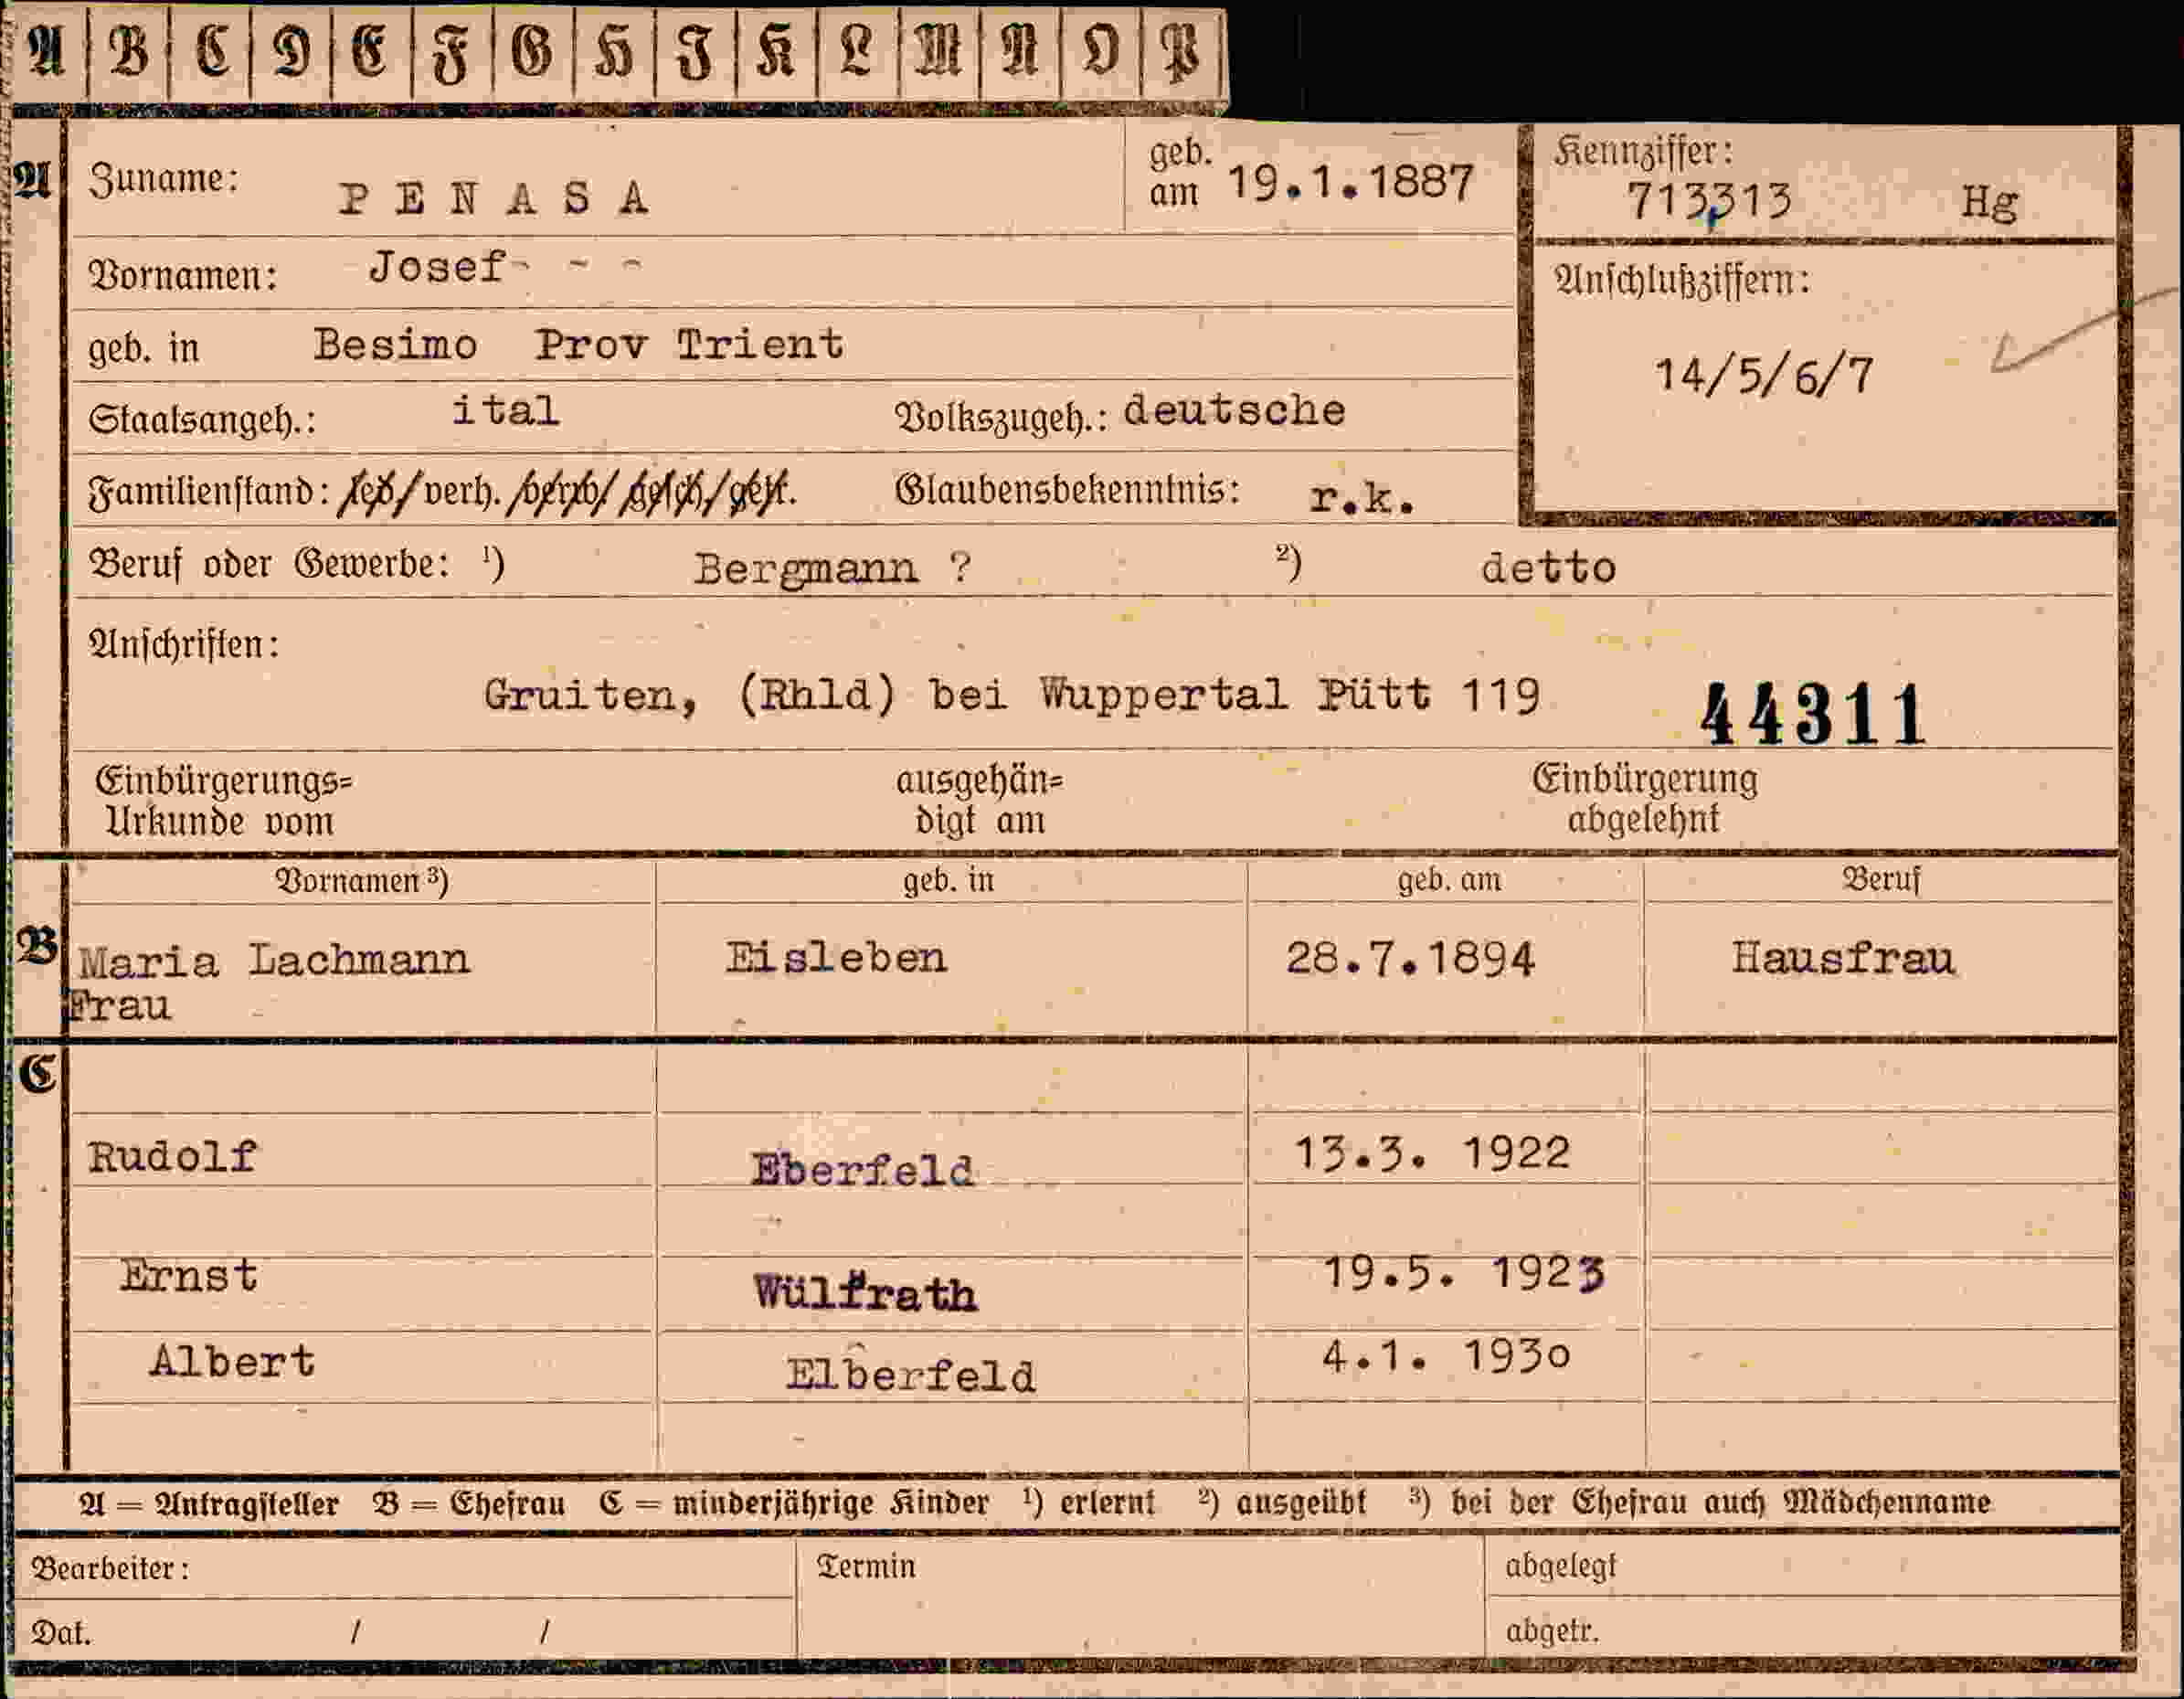 A B C D E F G H I K L M N O P
A Zuname: PENASA geb. am 19.1.1887 Kennziffer: 713,313 Hg
Vornamen: Josef- - -
Anschlußziffern:
geb. in Besimo Prov Trient
14/5/6/7
Staatsangeh.: ital Volkszugeh.: deutsche
Familienstand: led/verh./verw/gesch/getr. Glaubensbekenntnis: r.k.
Beruf oder Gewerbe: ¹) Bergmann ? ²) detto
Anschriften:
Gruiten, (Rhld) bei Wuppertal Pütt 119 44311
Einbürgerungs= ausgehän= Einbürgerung
Urkunde vom digt am abgelehnt
Vornamen ³) geb. in geb. am Beruf
B Maria Lachmann Eisleben 28.7.1894 Hausfrau
Frau
C
Rudolf Eberfeld 13.3. 1922
Ernst Wülfrath 19.5. 1923
Albert Elberfeld 4.1. 1930
A = Antragsteller B = Ehefrau C = minderjährige Kinder ¹) erlernt ²) ausgeübt ³) bei der Ehefrau auch Mädchenname
Bearbeiter: Termin abgelegt
Dat. / / abgetr.